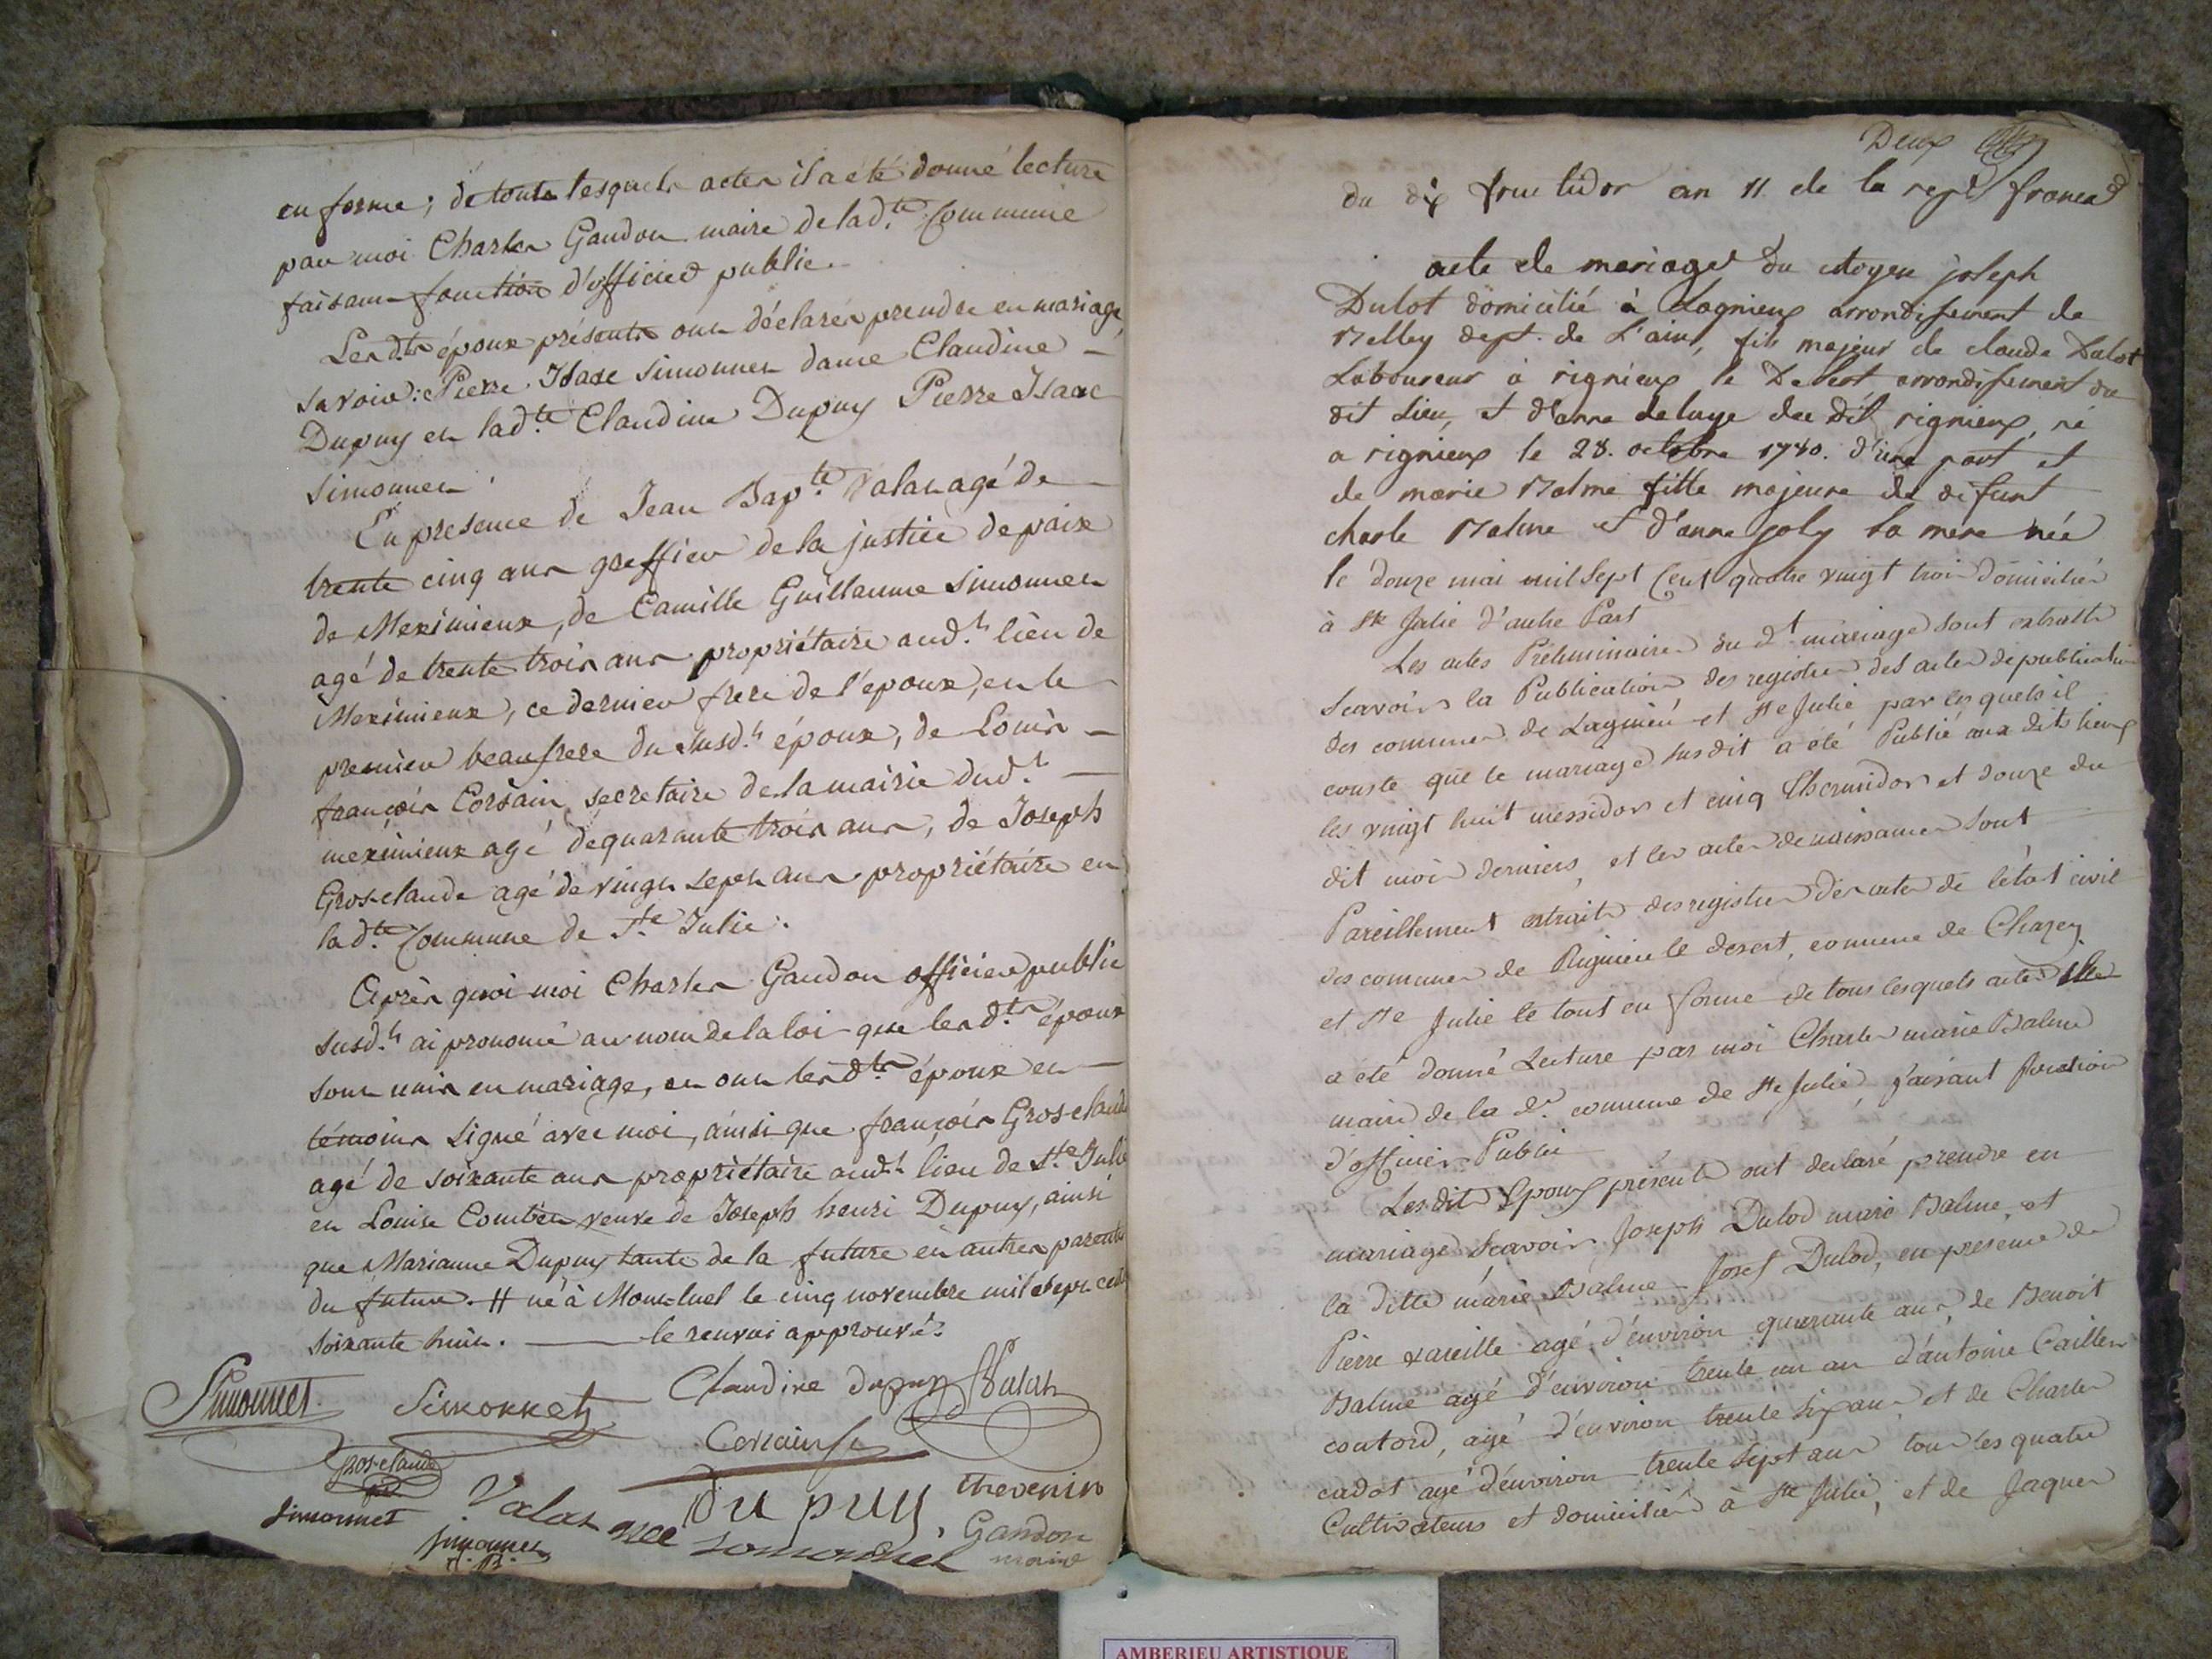 en forme; de toute lesquels actes il a été donné lecture
par moi Charles Gaudon maire de lad.te Commune
faisant fonction d'officier public.
Lesd.ts époux présents ont déclarés prendre en mariage,
savoir: Pierre Isaac Simonnet dame Claudine
Dupuy et lad.te Claudine Dupuy Pierre Isaac
Simonnet.
En presence de Jean Bap.te Valat agé de
trente cinq ans greffier de la justice de paix
de Meximieux, de Camille Guillaume Simonnet
agé de trente trois ans propriétaire aud.t lieu de
Meximieux, ce dernier frere de l'epoux, et le
premier beaufrere du susd.t époux, de Louis
françois Corsain secretaire de la mairie dud.t
meximieux agé de quarante trois ans, de Joseph
Gros-claude agé de vingt sept ans propriétaire en
la d.te Commune de S.te Julie.
Après quoi moi Charles Gaudon officier public
susd.t ai prononcé au nom de la loi que lesd.ts époux
sont unis en mariage, et ont lesd.ts époux et
témoins signé avec moi, ainsi que françois Gros-claude
agé de soixante ans propriétaire aud.t lieu de S.te Julie
et Louise veuve de Joseph henri Dupuy, ainsi
que Marianne Dupuy tante de la future et autres parents
du futur. # né à Montluel le cinq novembre mil sept cent
soixante huit. le renvoi approuvé.
Simonnet Simonnet Claudine dupuy Valat
Corsain
Gros-claude Dupuy thevenin
simonnet Valat née simonnet Gaudon
simonnet maire
Deux
du dix fructidor an 11 de la rep.e franca
acte de mariage du citoyen joseph
Dulot domicilié à Lagnieux arrondissement de
Belley dept. de L'ain, fils majeur de claude Dulot
Laboureur à rignieux le Desert arrondissement du
dit Lieu, et d'anne deluye du dit rignieux, né
a rignieux le 28. octobre 1780. d'une part et
de marie Balme fille majeure de defunt
charle Balme et d'anne joly sa mere née
le douze mai mil sept Cent quatre vingt trois domiciliés
à Ste Julie d'autre Part
Les actes Préliminaires du d.t mariage sont extraits
Scavoirs la Publication des registres des actes de publication
des communes de Lagnieu et Ste Julie par les quels il
conste que le mariage susdit a été Publié aux dits lieux
les vingt huit messidor et cinq Thermidor et douze du
dit mois derniers, et les actes de naissances sont
Pareillement extraits des registres des actes de l'état civil
des communes de Rignieu le desert, commune de Chazey
et Ste Julie le tout en forme de tous lesquels actes
a été donné Lecture par moi Charles marie Balme
maire de la d.e commune de Ste Julie, faisant fonction
d'officier Public
Lesdits Epoux présents ont declaré prendre en
mariage Scavoir Joseph Dulod marie Balme, et
la ditte marie Balme Josef Dulod, en presence de
Pierre agé d'environ quarante ans, de Benoit
Balme agé d'environ trente un an d'antoine Caillet
agé d'environ trente six ans, et de Charles
cadot agé d'environ trente sept ans tous les quatre
Cultivateurs et domiciliés à Ste Julie, et de Jaques
AMBERIEU ARTISTIQUE